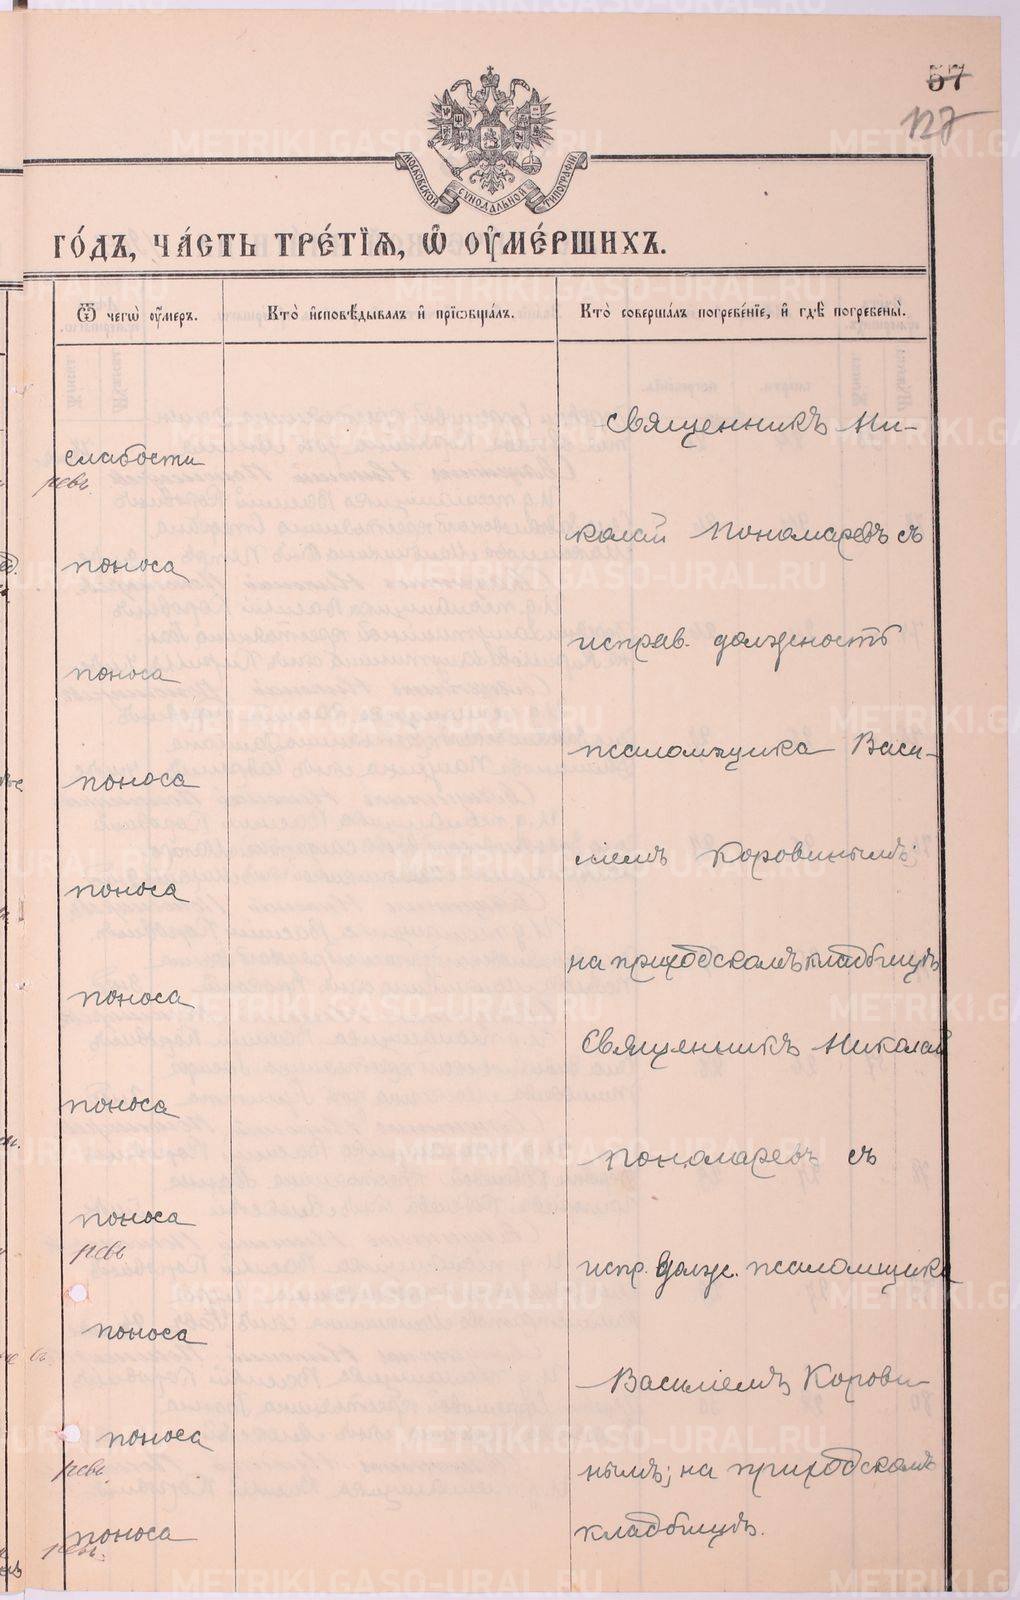 57
127
МОСКОВСКОЙ СѴНОДАЛЬНОЙ ТИПОГРАФІИ
ГО́ДЪ, ЧА́СТЬ ТРЕ́ТІѦ, Ѡ҆ ОУ҆МЕ́РШИХЪ.
Ѿ чегѡ̀ оу҆́меръ.
Кто̀ и҆сповѣ́дывалъ и҆ прїѡбща́лъ.
Кто̀ соверша́лъ погребе́нїе, и҆ гдѣ̀ погребены̀.
Священникъ Ни-
слабости
колай Пономаревъ съ
поноса
исправ. должность
поноса
псаломщика Васи-
поноса
ліемъ Коровинымъ;
поноса
на приходскомъ кладбищѣ
поноса
Священникъ Николай
поноса
Пономаревъ съ
поноса
испр. долж. псаломщика
поноса
Василіемъ Корови-
поноса
нымъ; на приходскомъ
поноса
кладбищѣ.
METRIKI.GASO-URAL.RU